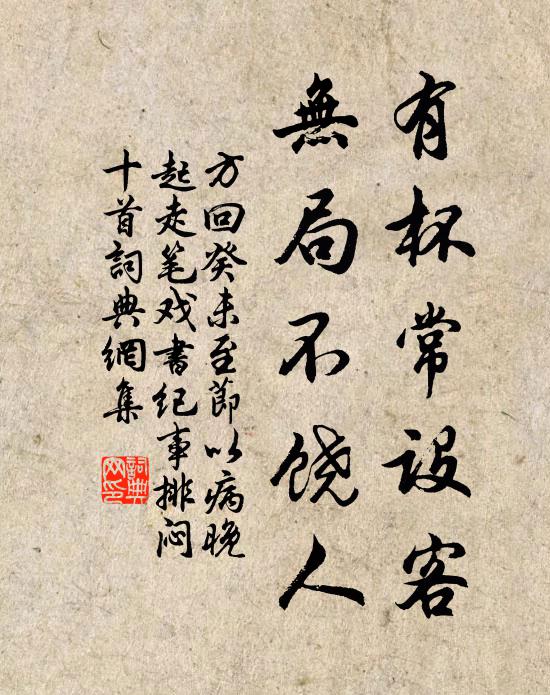 有杯常設客
無局不饒人
方回癸未至節以病晚
起走笔戏書纪事排闷
十首詞典網集
詞典
网印